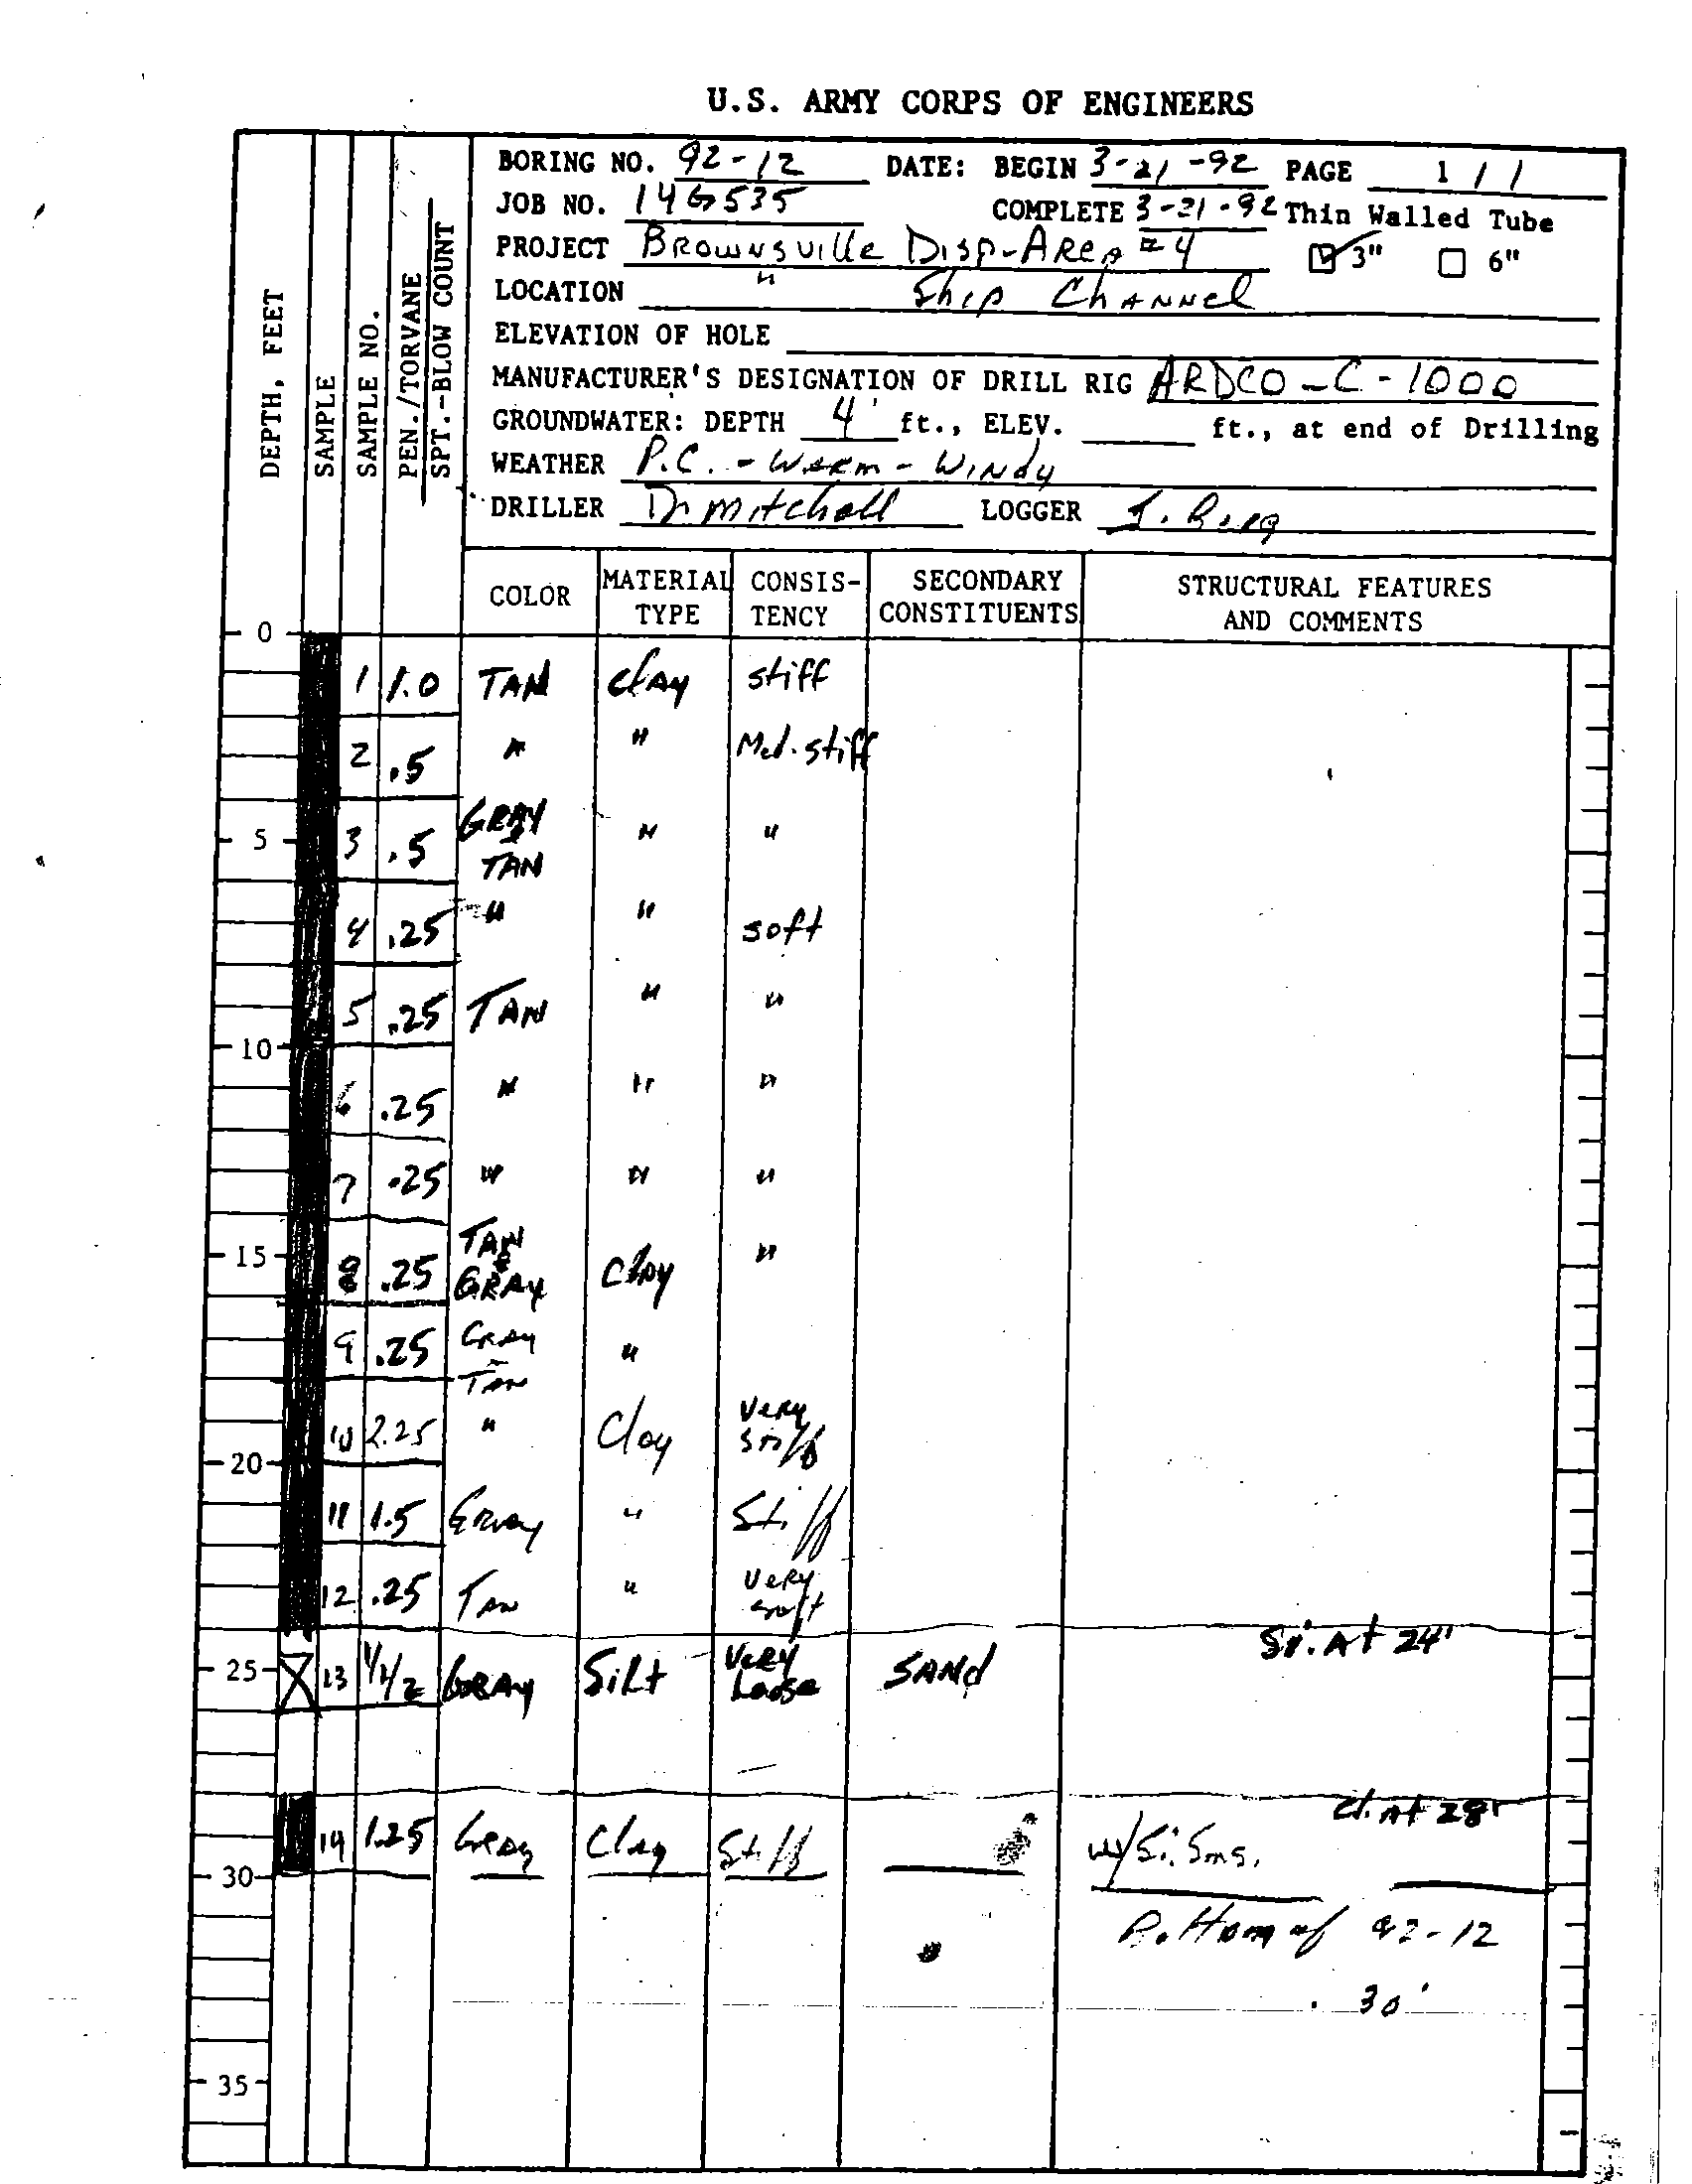 U.S. ARMY CORPS OF ENGINEERS
BORING NO. 92-12 DATE: BEGIN 3-21-92 PAGE 1 / 1
JOB NO. 14G535 COMPLETE 3-21-92 Thin Walled Tube
PROJECT Brownsville Disp-Area #4 3" 6"
LOCATION " Ship Channel
ELEVATION OF HOLE
MANUFACTURER'S DESIGNATION OF DRILL RIG ARDCO-C-1000
GROUNDWATER: DEPTH 4' ft., ELEV. ft., at end of Drilling
WEATHER P.C. - Warm - Windy
DRILLER D. Mitchell LOGGER J.
DEPTH, FEET
SAMPLE
SAMPLE NO.
PEN./TORVANE
SPT.-BLOW COUNT
COLOR MATERIAL TYPE CONSIS-TENCY SECONDARY CONSTITUENTS STRUCTURAL FEATURES AND COMMENTS
0
1 1.0 TAN clay stiff
2 .5 " " Med. stiff
5 3 .5 GRAY & TAN " "
4 .25 " " soft
5 .25 TAN " "
10
6 .25 " " "
7 .25 " " "
15 8 .25 TAN & GRAY clay "
9 .25 Gray & Tan "
10 2.25 " Clay Very stiff
20
11 1.5 Gray " Stiff
12 .25 Tan " Very soft
Si. At 24'
25 13 1/1/2 GRAY Silt Very Loose SAND
Cl. At 28'
14 1.25 Gray Clay Stiff w/ Si. Sms.
30
Bottom of 92-12
30'
35